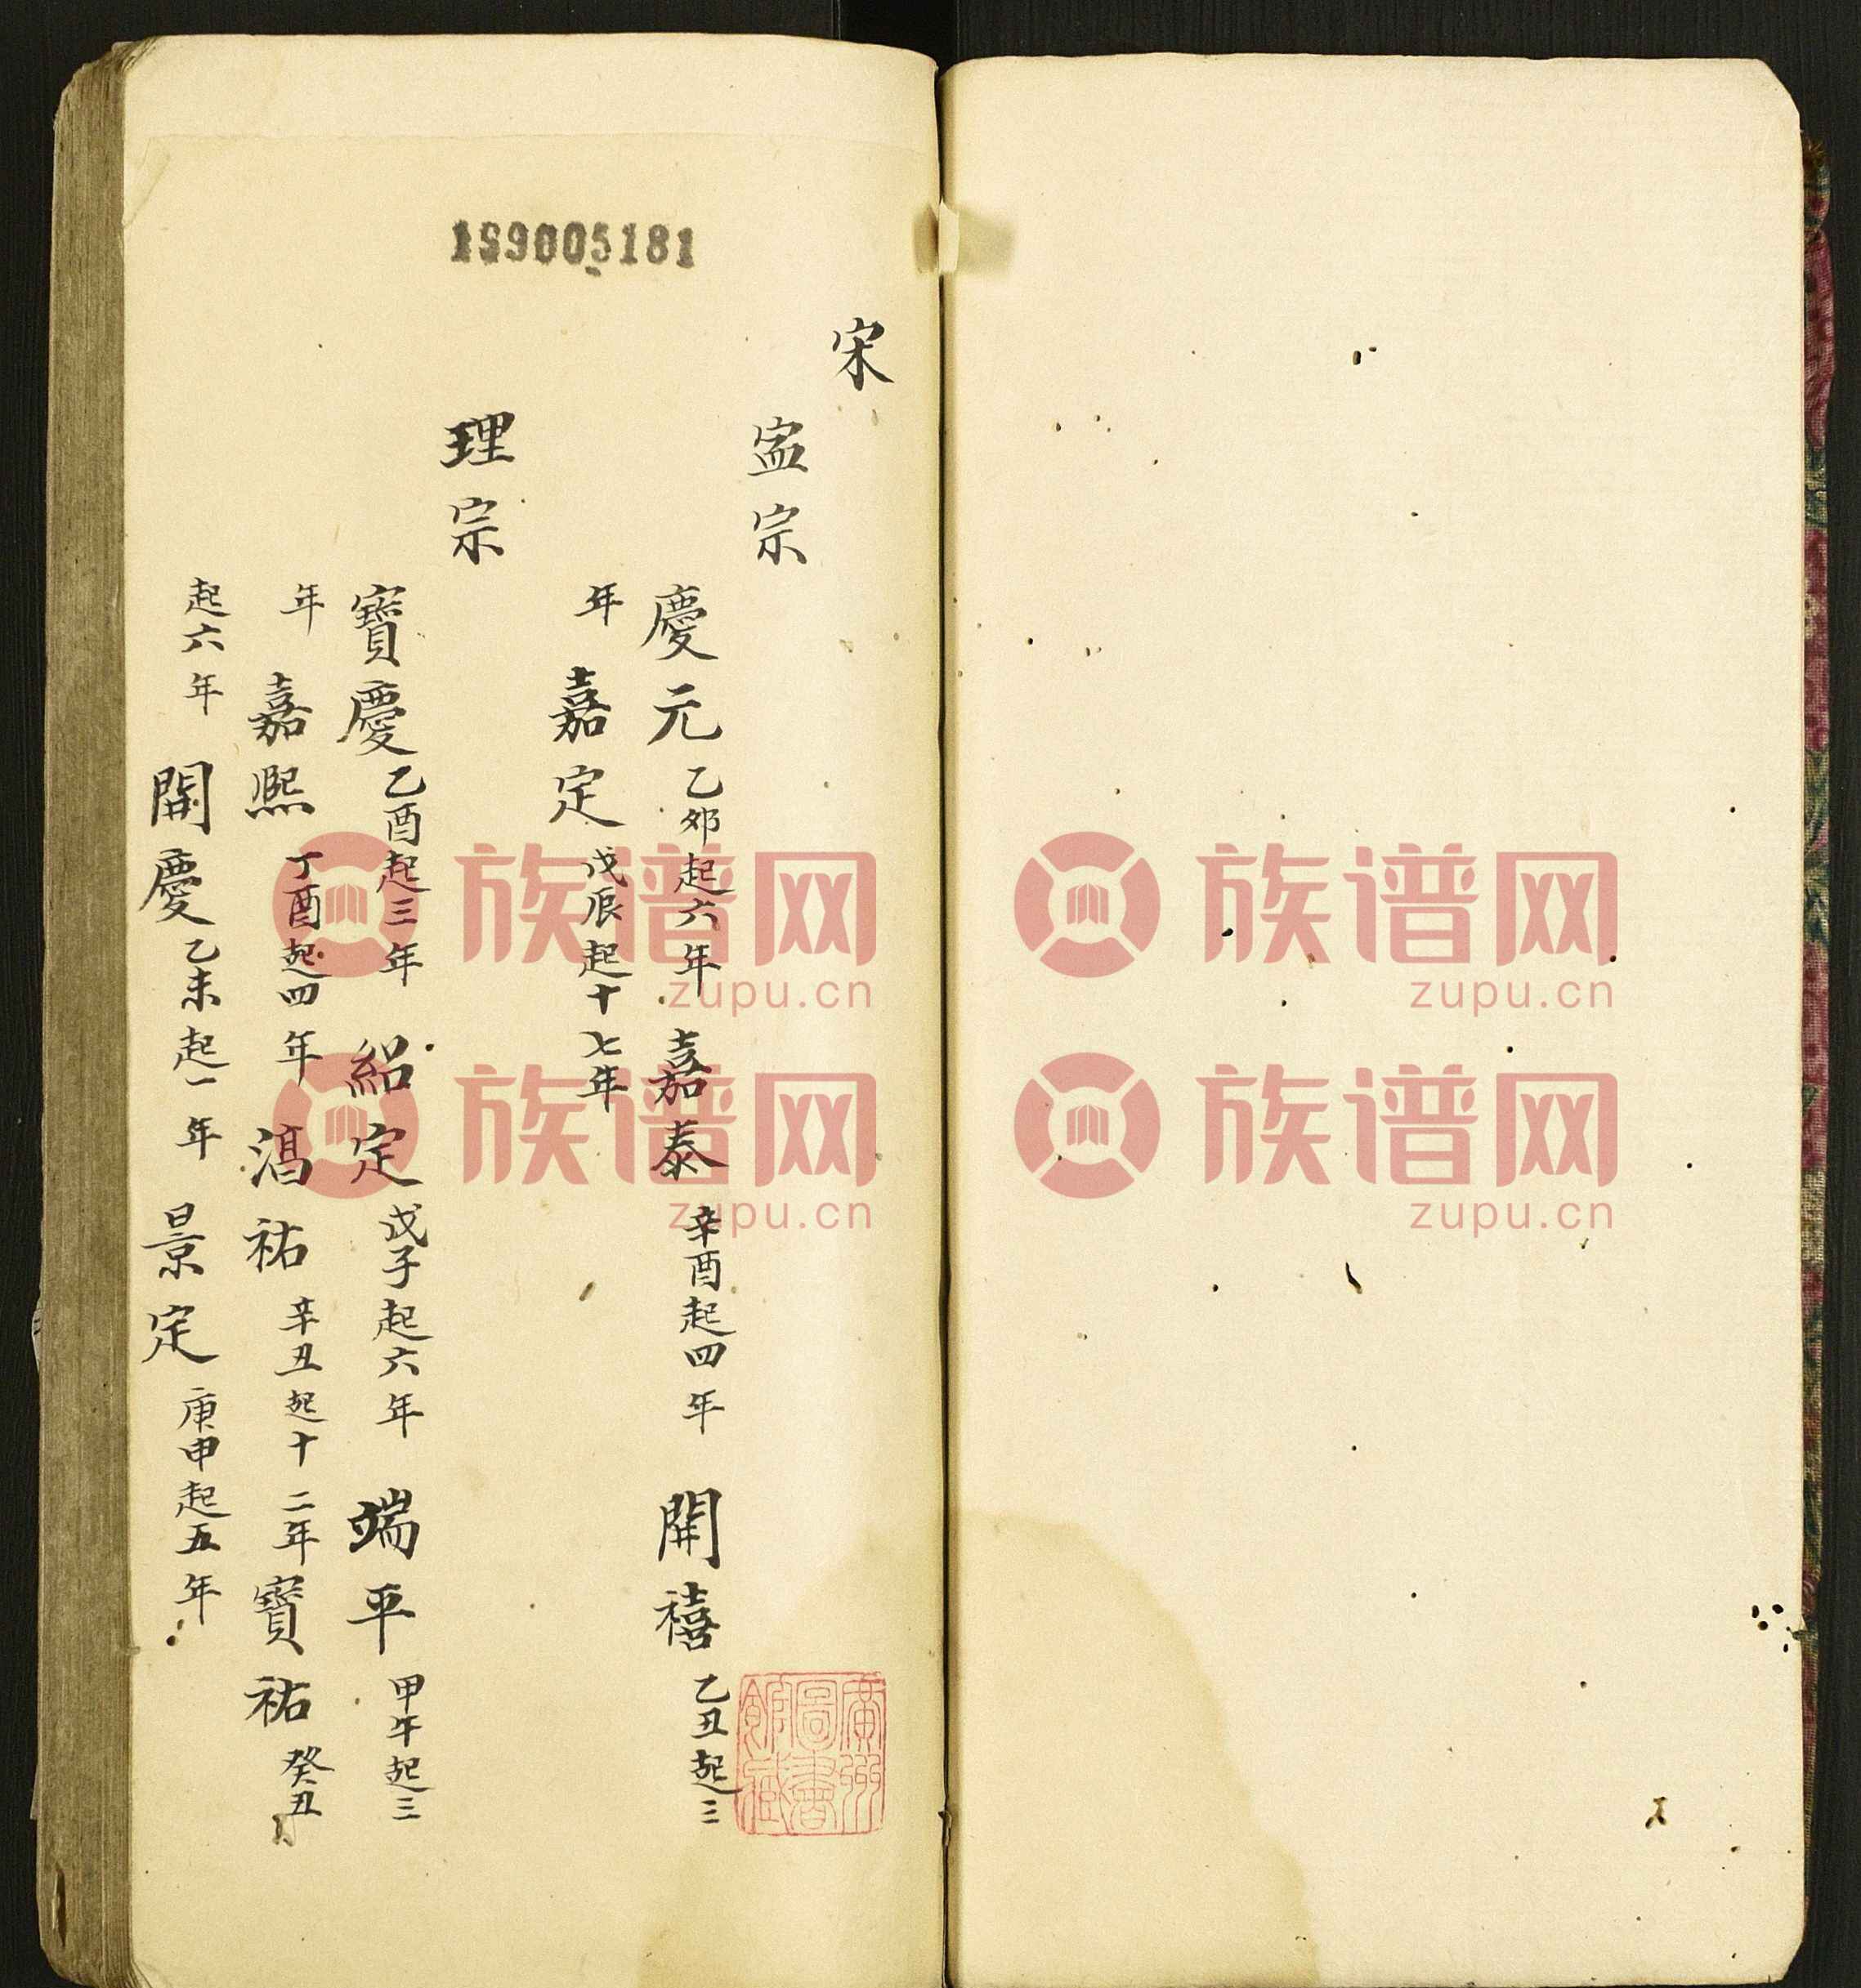 1S9005181
宋
寍宗
慶元乙夘起六年嘉泰辛酉起四年開禧乙丑起三
年嘉定戊辰起十七年
理宗
寶慶乙酉起三年紹定戊子起六年端平甲午起三
年嘉熙丁酉起四年湻祐辛丑起十二年寶祐癸丑
起六年開慶乙未起一年景定庚申起五年
廣州
圖書
館藏
族谱网
zupu.cn
族谱网
zupu.cn
族谱网
zupu.cn
族谱网
zupu.cn